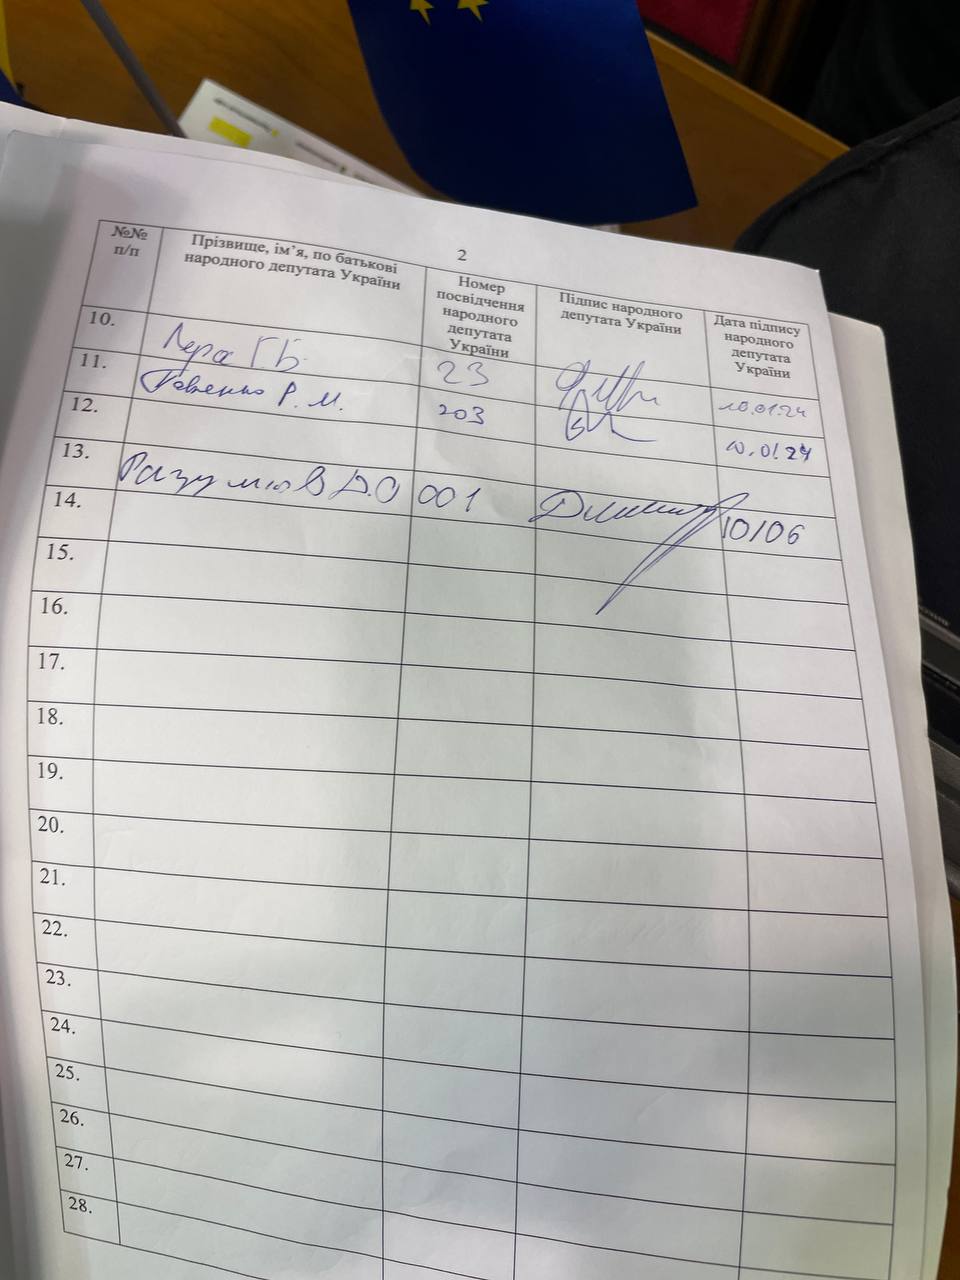 2
№№ п/п
Прізвище, ім'я, по батькові народного депутата України
Номер посвідчення народного депутата України
Підпис народного депутата України
Дата підпису народного депутата України
10. Лерос Г.Б. 23 10.01.24
11. Р.М. 203 10.01.24
12.
13. Разумков Д.О 001 10/06
14.
15.
16.
17.
18.
19.
20.
21.
22.
23.
24.
25.
26.
27.
28.